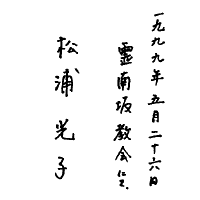 一九九九年五月二十六日
霊南坂教会にて
松浦光子